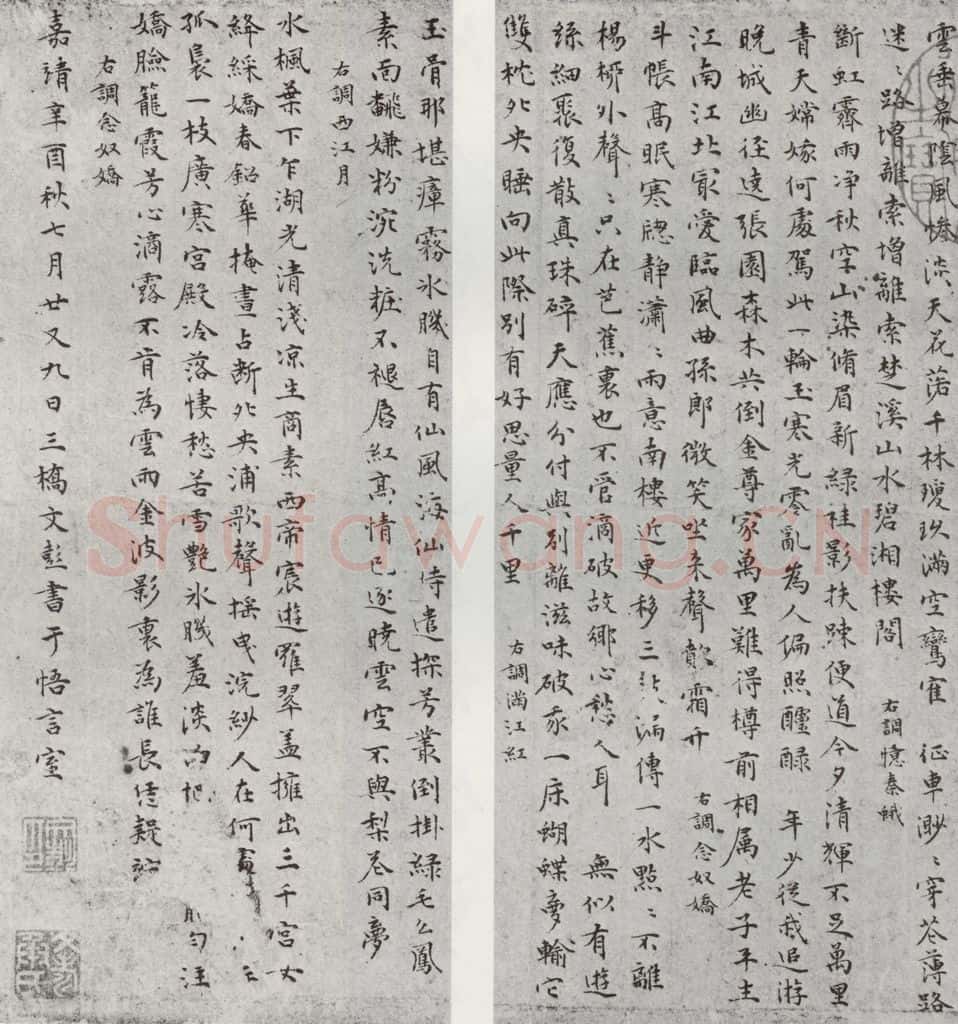 雲垂幕陰風慘淡天花落千林瓊玖滿空鸞寉 征車渺〻穿芲薄路
迷〻路增離索增離索楚溪山水碧湘樓閣 右調憶秦蛾
斷虹霽雨淨秋空山染脩眉新綠桂影扶疎便道今夕清輝不足萬里
青天嫦娥何處駕此一輪玉寒光零亂為人偏照醽醁 年少從我追游
晚城幽徑遶張園森木共倒金尊家萬里難得樽前相属老子平生
江南江北最愛臨風曲孫郎微笑坐来聲歕霜竹 右調念奴嬌
斗帳高眠寒窓靜瀟〻雨意南樓近更移三鼓漏傳一水點〻不離
楊柳外聲〻只在芭蕉裏也不管滴破故鄉心愁人耳 無似有遊
絲細聚復散真珠碎天應分付與別離滋味破我一床蝴蝶夢輸它
雙枕鴛央睡向此際別有好思量人千里 右調滿江紅
玉骨那堪瘴霧冰肌自有仙風海仙時遣探芳叢倒掛綠毛幺鳳
素面翻嫌粉涴洗粧不褪唇紅高情已逐曉雲空不與梨花同夢
右調西江月
水楓葉下乍湖光清淺凉生商素西帝宸遊羅翠盖擁出三千宮女
絳綵嬌春鉛華掩晝占断鴛央浦歌聲搖曳浣紗人在何處
孤裊一枝廣寒宮殿冷落悽愁苦雪艷冰肌羞淡泊把 勻注
嬌臉籠霞芳心滴露不肯為雲雨金波影裏為誰長恁凝竚
右調念奴嬌
嘉靖辛酉秋七月廿又九日三橋文彭書于悟言室
Shufawang.CN